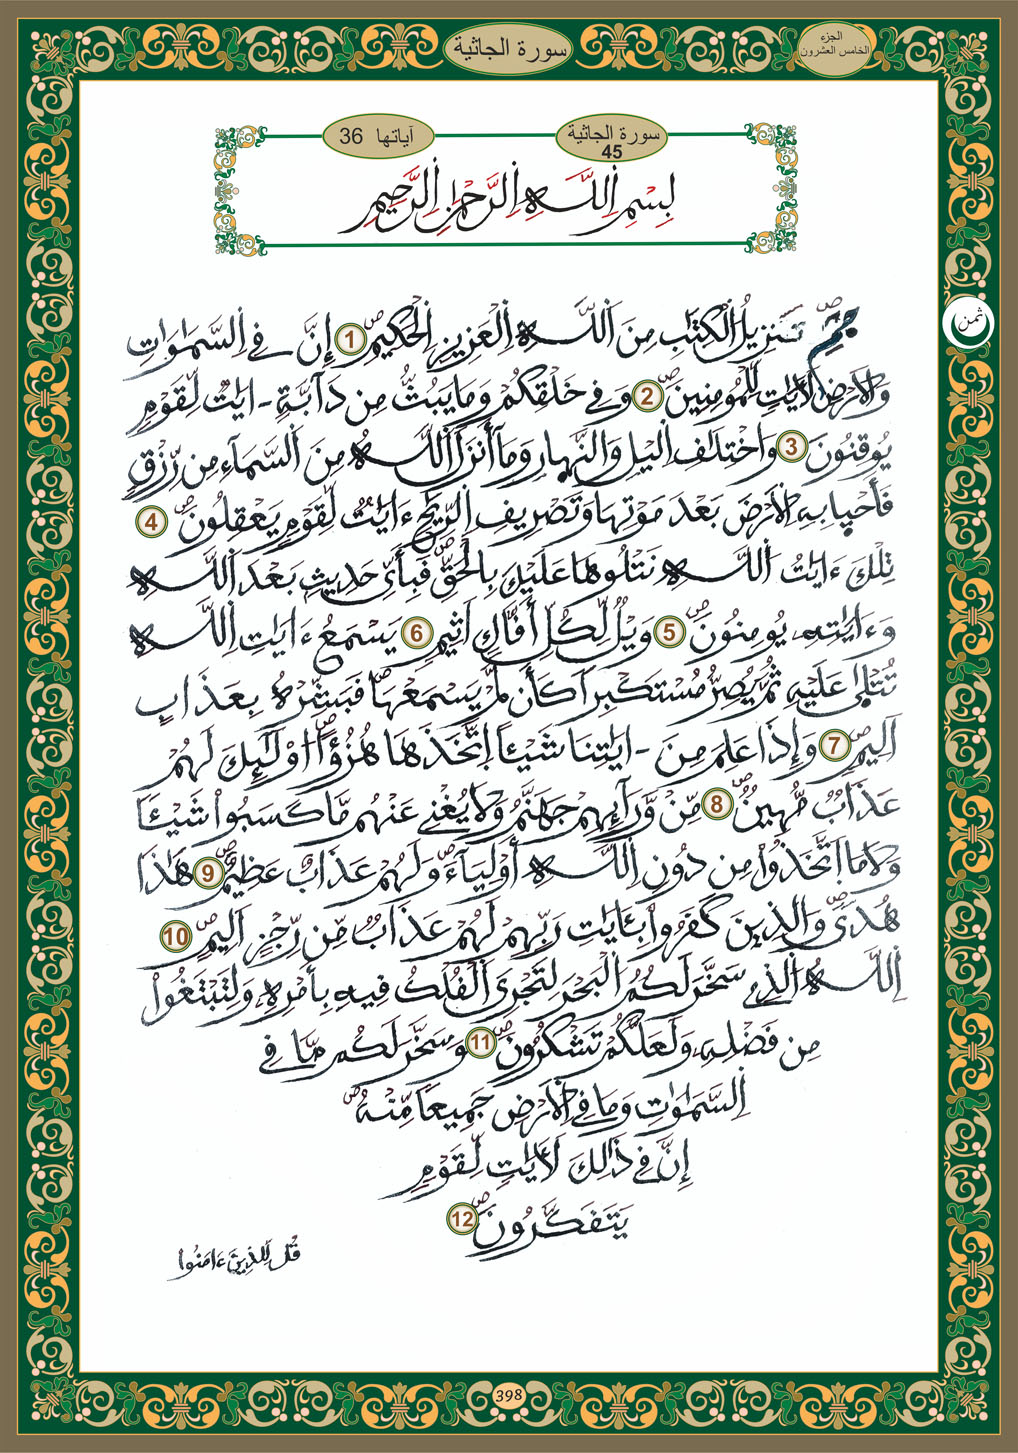 سورة الجاثية
الجزء
الخامس العشرون
سورة الجاثية
45
آياتها 36
بِسْمِ اِللَّهِ اِلرَّحْمَٰنِ اِلرَّحِيمِ
ثمن
حَمِٓۖ تَنزِيلُ اُلْكِتَٰبِ مِنَ اَللَّهِ اِلْعَزِيزِ اِلْحَكِيمِۖ 1 إِنَّ فِے اِلسَّمَٰوَٰتِ
وَالَارْضِ لَأَيَٰتٖ لِّلْمُومِنِينَۖ 2 وَفِے خَلْقِكُمْ وَمَا يَبُثُّ مِن دَآبَّةٍ ـ ايَٰتٞ لِّقَوْمٖ
يُوقِنُونَ 3 وَاخْتِلَٰفِ اِليْلِ وَالنَّهارِ وَمَآ أَنزَلَ اَللَّهُ مِنَ اَلسَّمَآءِ مِن رِّزْقٖ
فَأَحْيٖا بِهِ اِلَارْضَ بَعْدَ مَوْتِهَا وَتَصْرِيفِ اِلرِّيَٰحِ ءَايَٰتٞ لِّقَوْمٖ يَعْقِلُونَۖ 4
تِلْكَ ءَايَٰتُ اُللَّهِ نَتْلُوهَا عَلَيْكَ بِالْحَقِّۖ فَبِأَيِّ حَدِيثِۢ بَعْدَ اَللَّهِ
وَءَايَٰتِهِۦ يُومِنُونَۖ 5 وَيْلٞ لِّكُلِّ أَفَّاكٍ اَثِيمٖ 6 يَسْمَعُ ءَايَٰتِ اِللَّهِ
تُتْلَىٰ عَلَيْهِ ثُمَّ يُصِرُّ مُسْتَكْبِراٗ كَأَن لَّمْ يَسْمَعْهَاۖ فَبَشِّرْهُ بِعَذَابٍ
اَلِيمٖۖ 7 وَإِذَا عَلِمَ مِنَ ـ ايَٰتِنَا شَيْـٔاً اِتَّخَذَهَا هُزُؤاًۖ اوْلَٰٓئِكَ لَهُمْ
عَذَابٞ مُّهِينٞۖ 8 مِّنْ وَّرَآئِهِمْ جَهَنَّمُ وَلَا يُغْنِے عَنْهُم مَّا كَسَبُواْ شَيْـٔاٗ
وَلَا مَا اَتَّخَذُواْ مِن دُونِ اِللَّهِ أَوْلِيَآءَۖ وَلَهُمْ عَذَابٌ عَظِيمٌۖ 9 هَٰذَا
هُدىٗۖ وَالذِينَ كَفَرُواْ بِـَٔايَٰتِ رَبِّهِمْ لَهُمْ عَذَابٞ مِّن رِّجْزٍ اَلِيمٍۖ 10
اِللَّهُ اُلذِے سَخَّرَ لَكُمُ اُلْبَحْرَ لِتَجْرِيَ اَلْفُلْكُ فِيهِ بِأَمْرِهِۦ وَلِتَبْتَغُواْ
مِن فَضْلِهِۦ وَلَعَلَّكُمْ تَشْكُرُونَۖ 11 وَسَخَّرَ لَكُم مَّا فِے
اِلسَّمَٰوَٰتِ وَمَا فِے اِلَارْضِ جَمِيعاٗ مِّنْهُۖ
إِنَّ فِے ذَٰلِكَ لَأَيَٰتٖ لِّقَوْمٖ
يَتَفَكَّرُونَۖ 12
قُل لِّلذِينَ ءَامَنُواْ
398